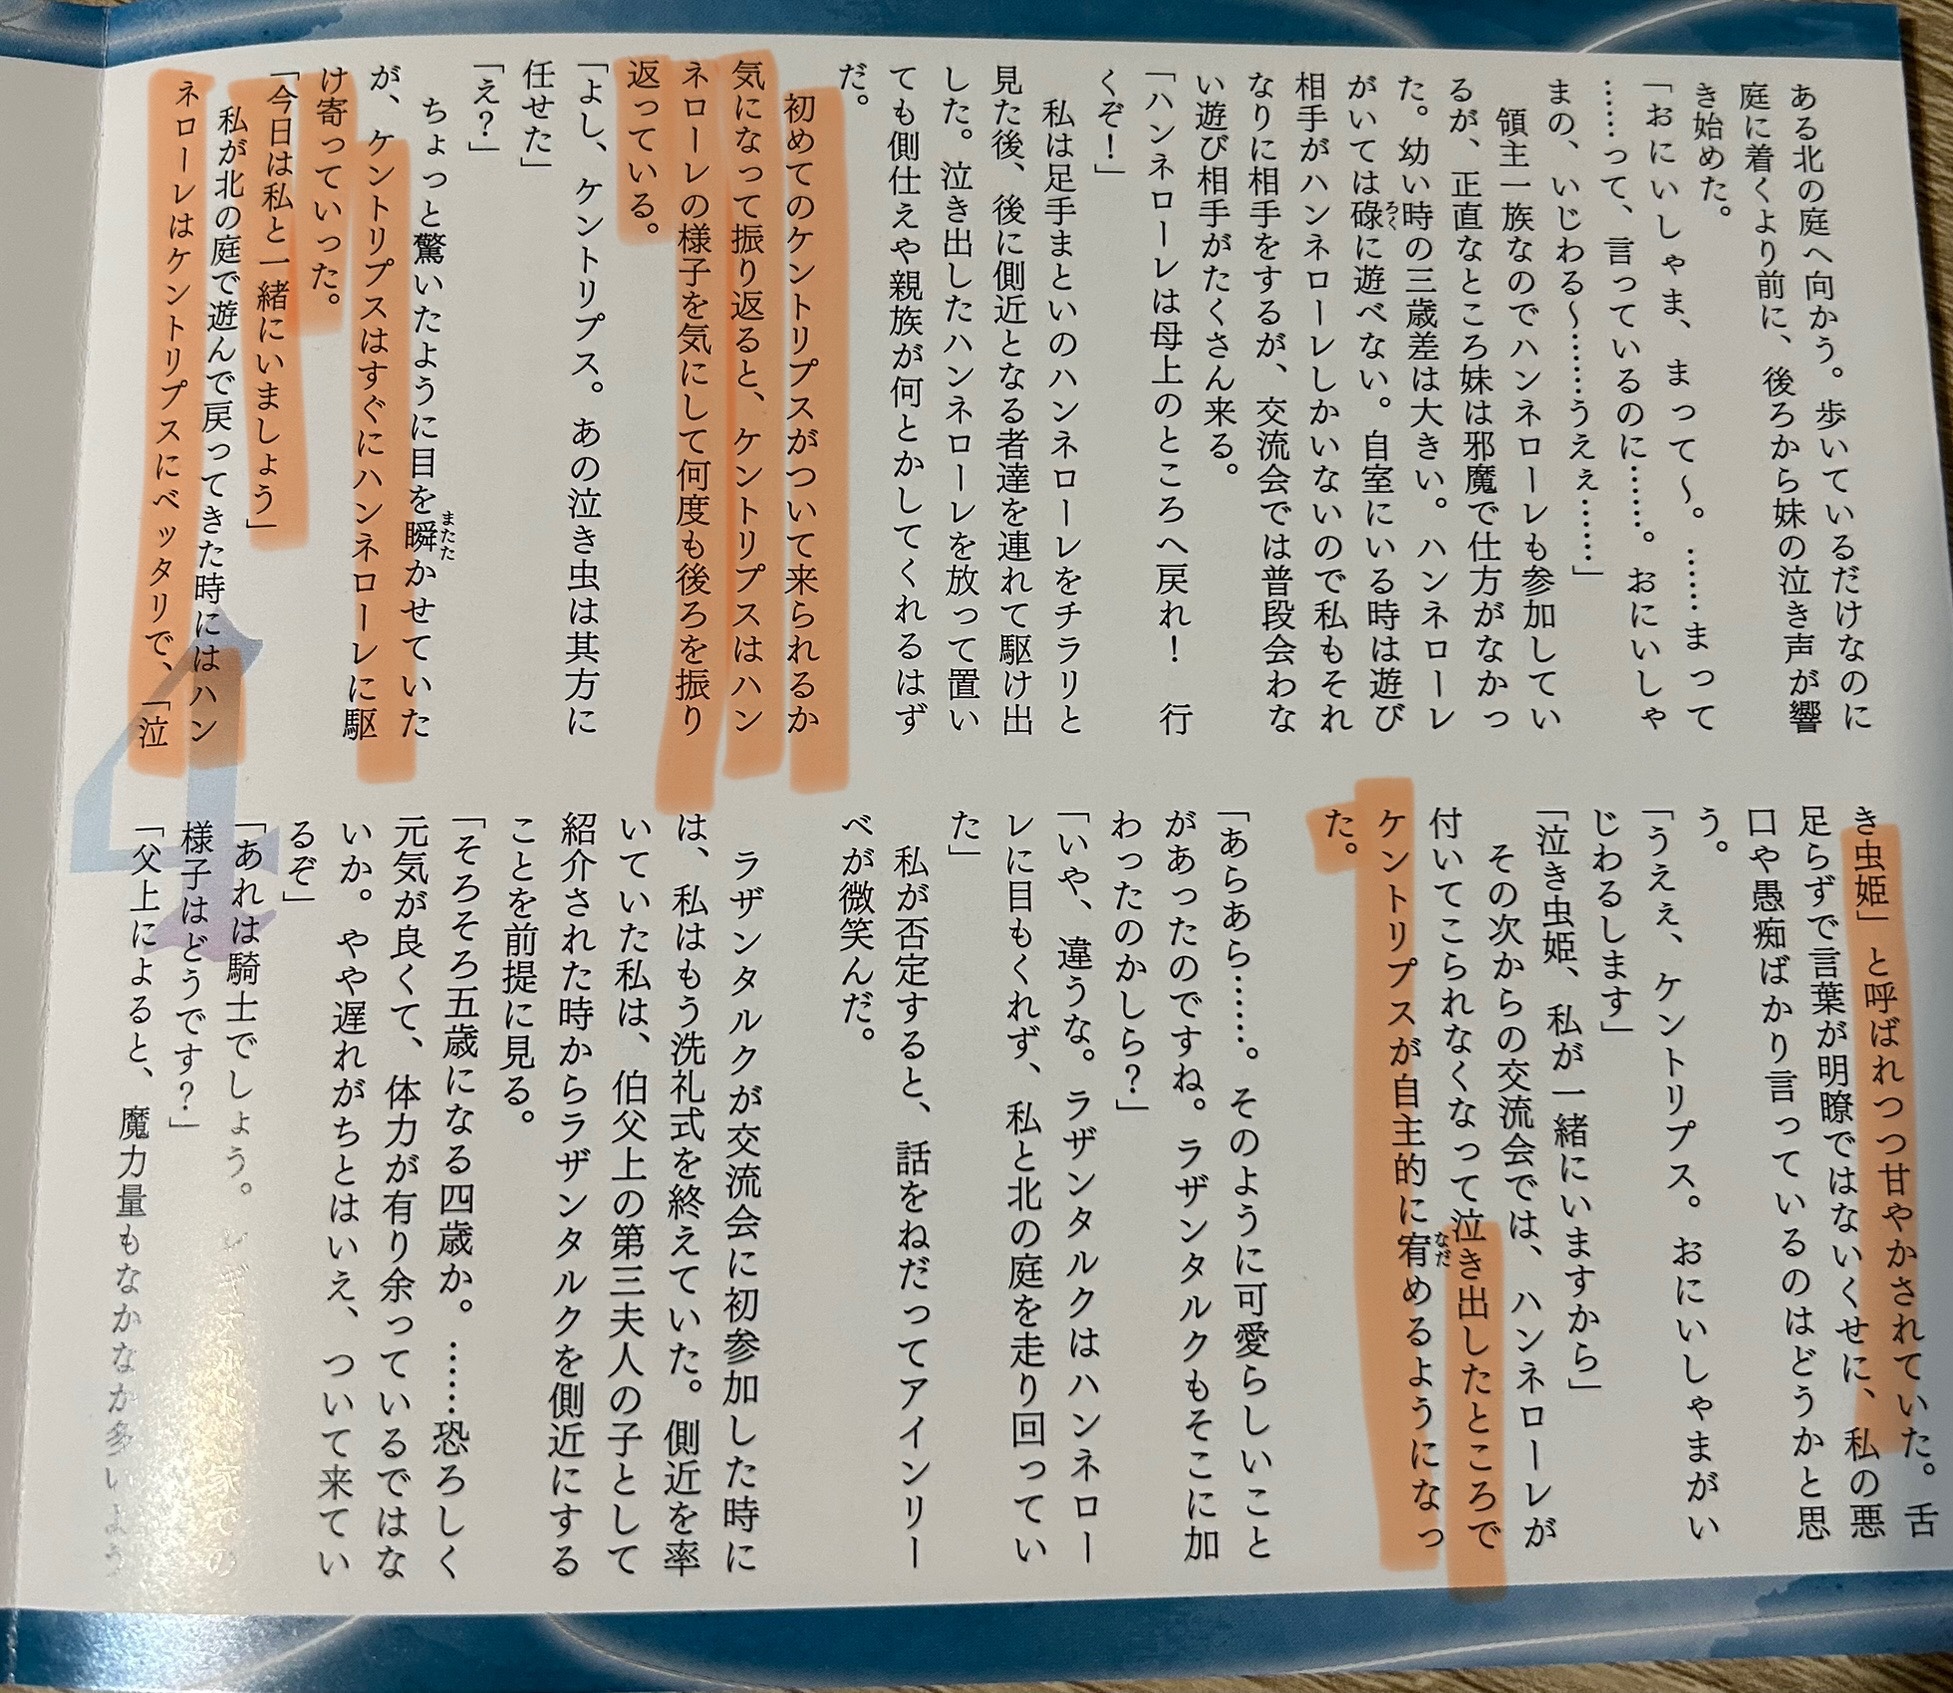 ある北の庭へ向かう。歩いているだけなのに
庭に着くより前に、後ろから妹の泣き声が響
き始めた。
「おにいしゃま、まって～。……まって
……って、言っているのに……。おにいしゃ
まの、いじわる～……うえぇ……」
領主一族なのでハンネローレも参加してい
るが、正直なところ妹は邪魔で仕方がなかっ
た。幼い時の三歳差は大きい。ハンネローレ
がいては碌に遊べない。自室にいる時は遊び
相手がハンネローレしかいないので私もそれ
なりに相手をするが、交流会では普段会わな
い遊び相手がたくさん来る。
「ハンネローレは母上のところへ戻れ！　行
くぞ！」
私は足手まといのハンネローレをチラリと
見た後、後に側近となる者達を連れて駆け出
した。泣き出したハンネローレを放って置い
ても側仕えや親族が何とかしてくれるはず
だ。
初めてのケントリプスがついて来られるか
気になって振り返ると、ケントリプスはハン
ネローレの様子を気にして何度も後ろを振り
返っている。
「よし、ケントリプス。あの泣き虫は其方に
任せた」
「え？」
ちょっと驚いたように目を瞬かせていた
が、ケントリプスはすぐにハンネローレに駆
け寄っていった。
「今日は私と一緒にいましょう」
私が北の庭で遊んで戻ってきた時にはハン
ネローレはケントリプスにベッタリで、「泣
き虫姫」と呼ばれつつ甘やかされていた。舌
足らずで言葉が明瞭ではないくせに、私の悪
口や愚痴ばかり言っているのはどうかと思
う。
「うえぇ、ケントリプス。おにいしゃまがい
じわるします」
「泣き虫姫、私が一緒にいますから」
その次からの交流会では、ハンネローレが
付いてこられなくなって泣き出したところで
ケントリプスが自主的に宥めるようになっ
た。
「あらあら……。そのように可愛らしいこと
があったのですね。ラザンタルクもそこに加
わったのかしら？」
「いや、違うな。ラザンタルクはハンネロー
レに目もくれず、私と北の庭を走り回ってい
た」
私が否定すると、話をねだってアインリー
べが微笑んだ。
ラザンタルクが交流会に初参加した時に
は、私はもう洗礼式を終えていた。側近を率
いていた私は、伯父上の第三夫人の子として
紹介された時からラザンタルクを側近にする
ことを前提に見る。
「そろそろ五歳になる四歳か。……恐ろしく
元気が良くて、体力が有り余っているではな
いか。やや遅れがちとはいえ、ついて来てい
るぞ」
「あれは騎士でしょう。での
様子はどうです？」
「父上によると、魔力量もなかなか多いよう
4